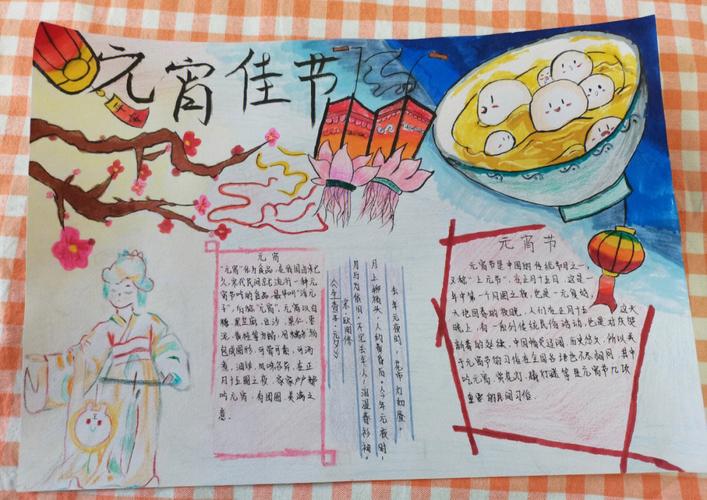 元宵佳节
元宵
"元宵"作为食品，在我国由来已
久，宋代民间即流行一种元
宵节吃的食品，最早叫"浮元
子"，后称"元宵"，元宵以白
糖、黑芝麻、豆沙、果仁、枣泥
等为馅，用糯米粉
包成圆形，可荤可素，可汤
煮、油炸、风味各异，在正
月十五团之夜，家家户户都
吃元宵，有团圆美满之
意。
去年元夜时，花市灯如昼。
月上柳梢头，人约黄昏后。今年元夜时，
月与灯依旧。不见去年人，泪湿春衫袖。
宋·欧阳修
《生查子·元夕》
元宵节
元宵节是中国的传统节日之一，
又称"上元节"，在正月十五日，这是一
年中第一个月圆之夜，也是一元复始，
大地回春的夜晚，人们在正月十五这天
晚上，有一系列传统民俗活动，也是对庆贺
新春的延续，中国幅员辽阔，历史悠久，所以关
于元宵节的习俗在全国各地也不尽相同，其中
吃元宵、赏花灯、猜灯谜等是元宵节几项
重要的民间习俗。